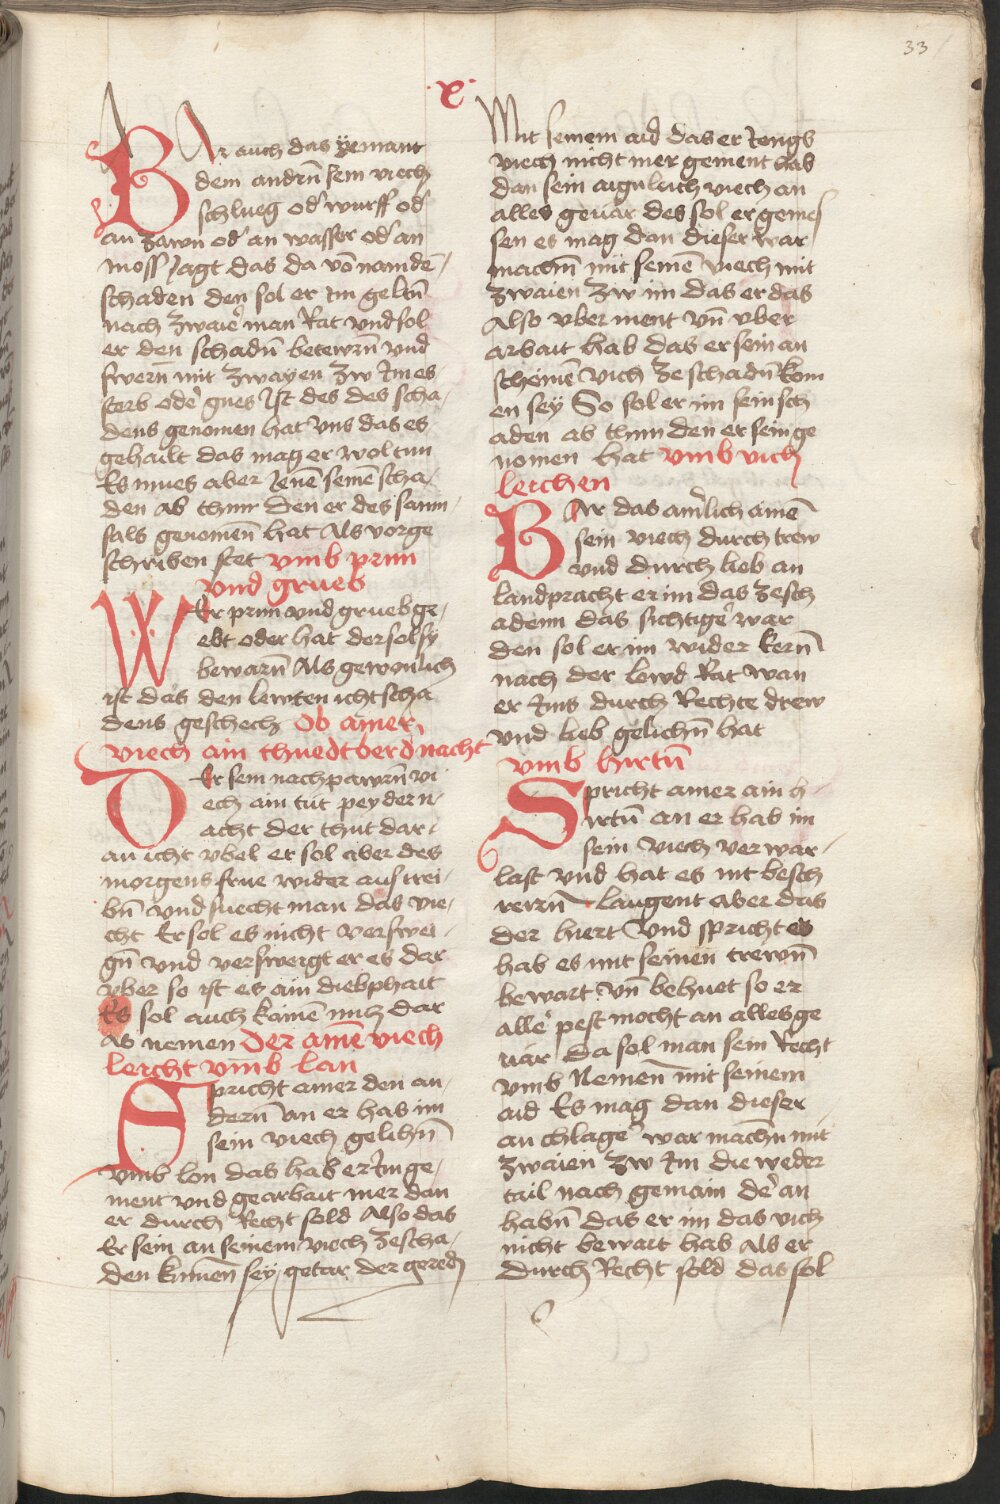 33
x
WAr auch das yemant
dem andrn̄ sein viech
schlueg od' wurff od'
an zawn od' an wasser od' an
moss Jagt das da vō namde-
schaden den sol er Im geltn̄
nach zwaie' man Rat vnd sol
er den schadn̄ betewrn̄ vnd
swern mit zwayen zw Im es
sterb ode' gnes Ist des des scha-
dens genomen hat vns das es
gehailt das mag er wol tun
Es mues aber Jenē seinē scha-
den ab thun den er des sam-
fals genomen̄ hat Als vorge
schriben stet vmb prun
vnd grueb
WEr prun vnd grueb ge-
ebt oder hat der sol sy
bewarn̄ Als gewonlich
ist das den lewten icht scha
dens geschech Ob ainer
viech ain thuedt berd nacht
DEr sein nachpawrn̄ vi
ech ain tut pey der n-
acht der thut dar-
an icht vbel er sol aber des
morgens frue wider aus trei-
bn̄ vnd suecht man das vie-
cht Er sol es nicht verswei-
gn̄ vnd versweigt er es dar
vber so ist es ain diebphait
Es sol auch kainē nucz dar
ab nemen Der amē viech
leicht vmb lan
Spricht ainer den an-
dern̄ an er hab im
sein viech gelihn̄
vmb lon das hab er Im ge-
ment vnd gearbait mer dan
er durch Recht sold Also das
Er sein an seinem viech zescha-
den kumen̄ sey getar der geredn̄
Mit seinem aid das er Jengs
viech nicht mer gement hab
dan sein aigenleich viech an
alles gevar des sol er genies
sen es mag dan dieser war
machn̄ mit seinē viech mit
zwaien zw im das er das
Also vber ment vn̄ vber
arbait hab das er sein an
scheinē vich ze schadn̄ kom
en sey So sol er im sein sch
aden ab thun den er sein ge
nomen hat vmb vich
leichen
WAr das ain'lich ainē
sein viech durch trew
vnd durch lieb an
landpracht er im das zesch
adenn das sichtige' war
den sol er im wider kern̄
nach der lewd Rat wan
er Ims durch Rechte drew
vnd lieb gelichn̄ hat
vmb hirtn̄
Spricht ainer ain h-
irtn̄ an er hab im
sein viech verwar-
last vnd hat es nit besch
rirn̄ Laugent aber das
der hiert vnd spricht er
hab es mit seinen trewn̄
bewart vn̄ behuet so er
alle' pest mocht an alles ge
uar Da sol man sein Recht
vmb Nemen̄ mit seinem
aid Es mag dan dieser
an chlage' war machn̄ mit
zwaien zw Im die weder
tail nach gemain de' an
habn̄ das er im das vich
nicht bewart hab Als er
durch Recht sold das sol